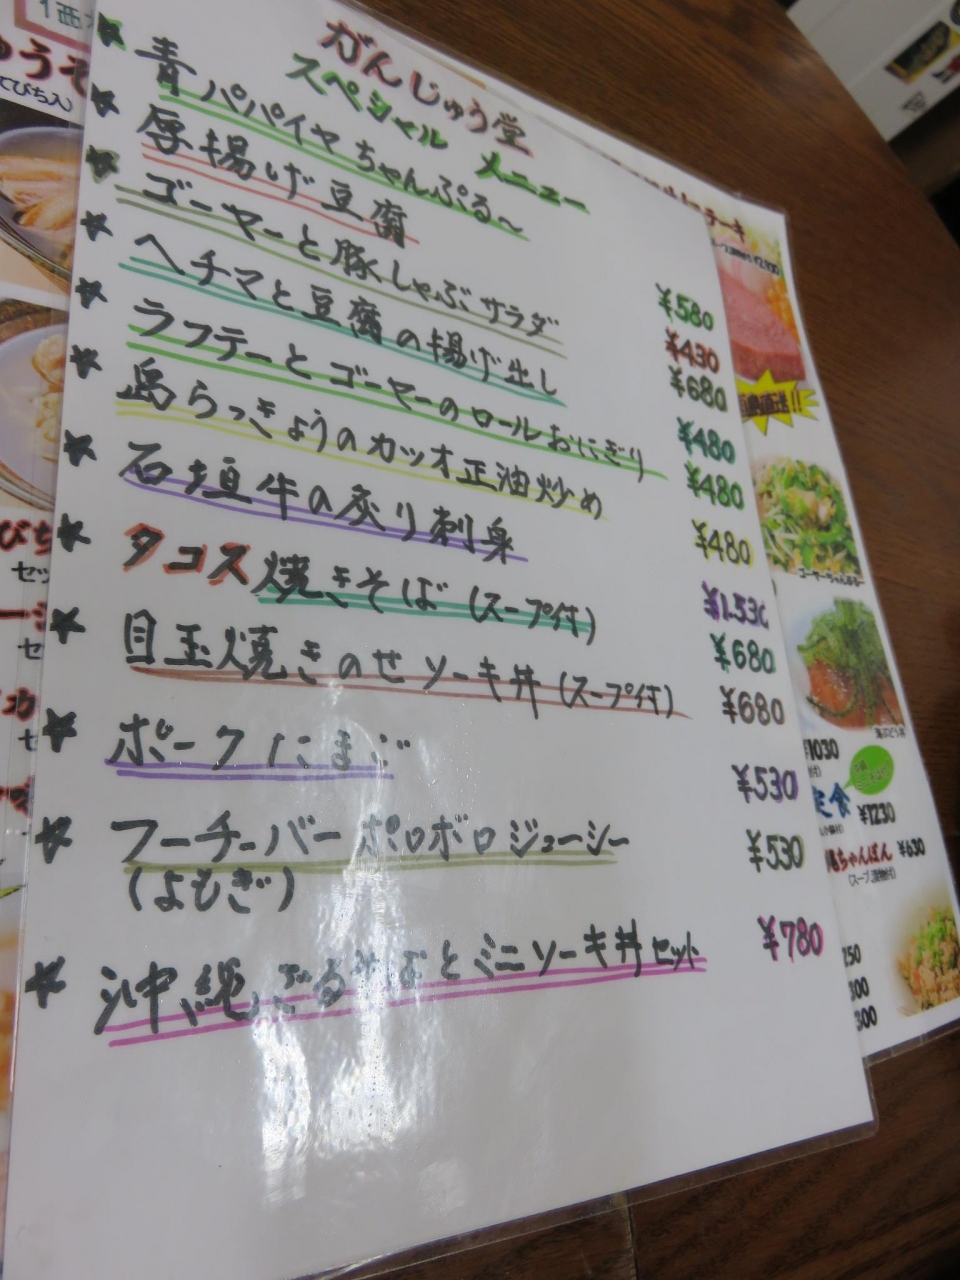 がんじゅう堂
スペシャル メニュー
★ 青パパイヤちゃんぷる〜 ¥580
★ 厚揚げ豆腐 ¥430
★ ゴーヤーと豚しゃぶサラダ ¥680
★ ヘチマと豆腐の揚げ出し ¥480
★ ラフテーとゴーヤーのロールおにぎり ¥480
★ 島らっきょうのカツオ正油炒め ¥480
★ 石垣牛の炙り刺身 ¥1.530
★ タコス焼きそば(スープ付) ¥680
★ 目玉焼きのせソーキ丼(スープ付) ¥680
★ ポークにまご ¥530
★ フーチーバーボロボロジューシー ¥530
(よもぎ)
★ 沖縄ざるそばとミニソーキ丼セット ¥780
直送!!
ゴーヤーちゃんぷるー
海ぶどう丼
¥1030
定食 ¥1230
ちゃんぽん ¥630
(スープ・漬物付)
250
300
300
てびち入)